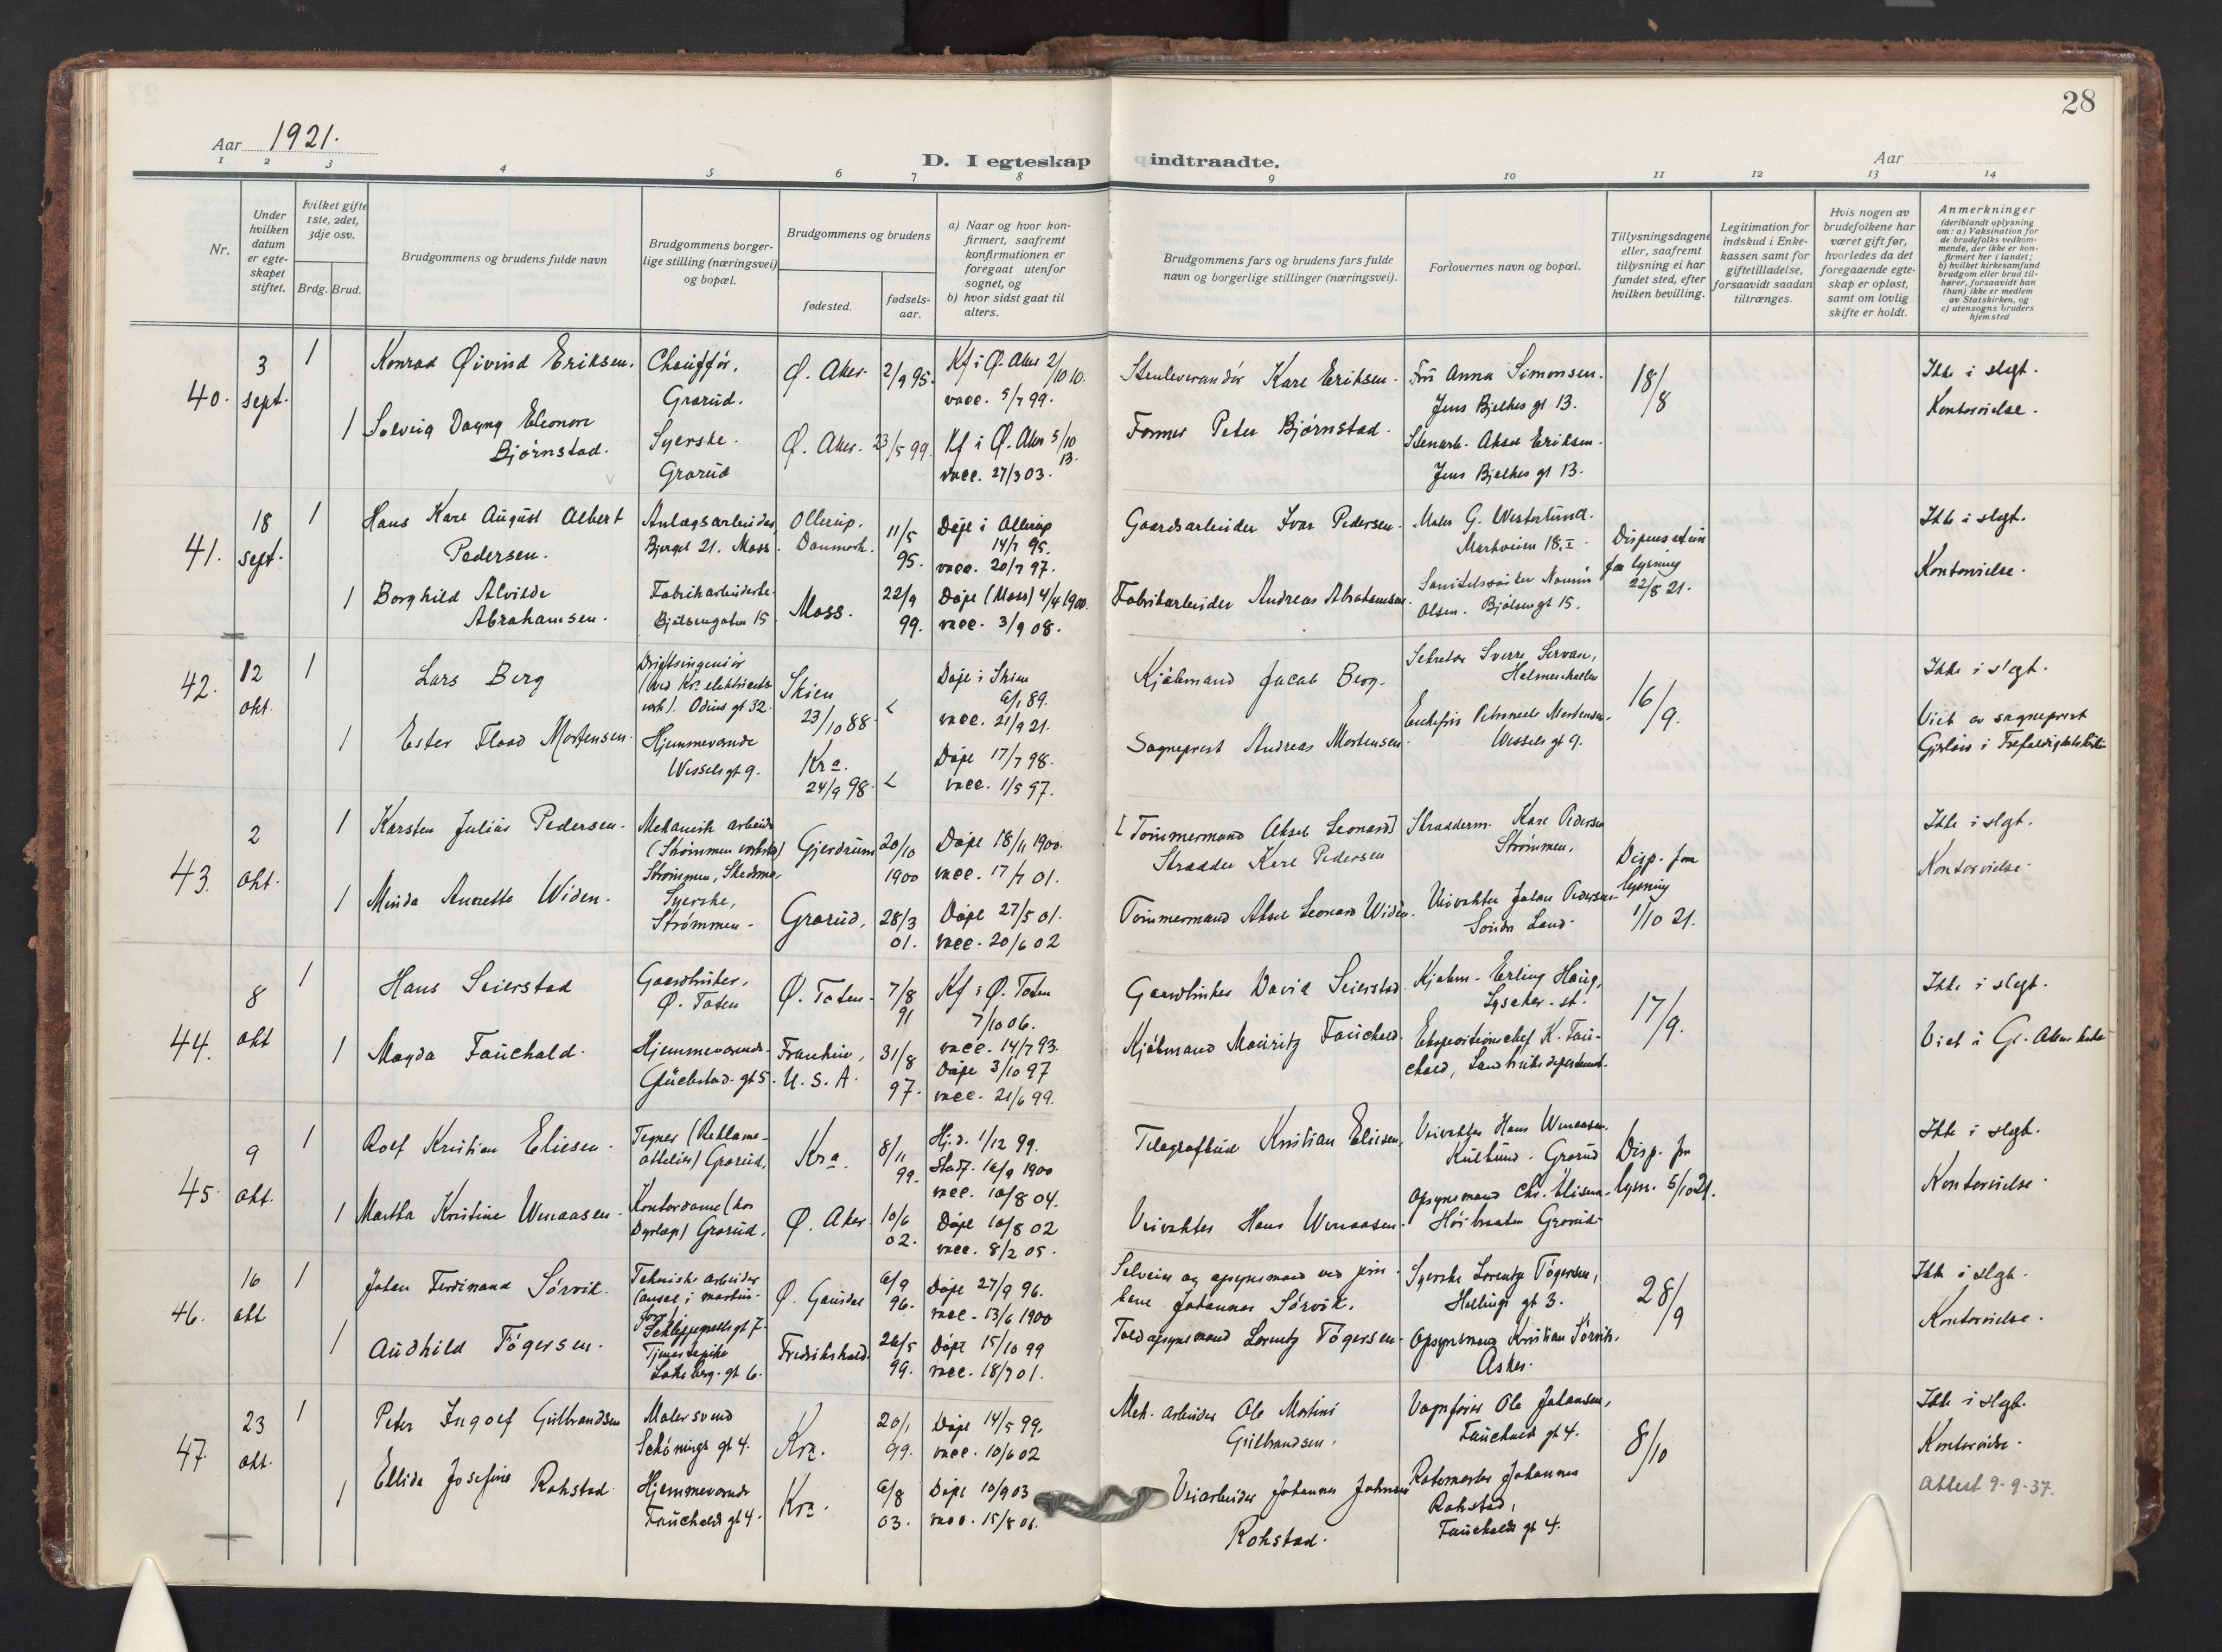 28
Aar 1921.
D. I egteskap indtraadte.
Aar
1 2 3 4 5 6 7 8 9 10 11 12 13 14
Nr.
Under hvilken datum er egteskapet stiftet.
hvilket gifte 1ste, 2det, 3dje osv.
Brdg. Brud.
Brudgommens og brudens fulde navn
Brudgommens borgerlige stilling (næringsvei) og bopæl.
Brudgommens og brudens
fødested.
fødselsaar.
a) Naar og hvor konfirmert, saafremt konfirmationen er foregaat utenfor sognet, og
b) hvor sidst gaat til alters.
Brudgommens fars og brudens fars fulde navn og borgerlige stillinger (næringsvei).
Forlovernes navn og bopæl.
Tillysningsdagene eller, saafremt tillysning ei har fundet sted, efter hvilken bevilling.
Legitimation for indskud i Enkekassen samt for giftetilladelse, forsaavidt saadan tiltrænges.
Hvis nogen av brudefolkene har været gift før, hvorledes da det foregaaende egteskap er opløst, samt om lovlig skifte er holdt.
Anmerkninger
(deriblandt oplysning om: a) Vaksination for de brudefolks vedkommende, der ikke er konfirmert her i landet; b) hvilket kirkesamfund brudgom eller brud tilhører, forsaavidt han (hun) ikke er medlem av Statskirken, og c) utensogns bruders hjemsted
40. 3 sept.
1 Konrad Øivind Eriksen. Chauffør, Grorud. Ø. Aker. 2/9 95. Kf i Ø. Aker 2/10 10. vacc. 5/7 99.
Stenleverandør Karl Eriksen. Fru Anna Simonsen. Jens Bjelkes gt 13. 18/8 Ikke i slegt.
1 Solveig Dagny Eleonore Bjørnstad. Syerske. Grorud Ø. Aker. 23/5 99. Kf i Ø. Aker 5/10 13. vacc. 27/3 03.
Former Peter Bjørnstad. Stenarb. Aksel Eriksen. Jens Bjelkes gt 13. Kontorvielse.
41. 18 sept.
1 Hans Karl August Albert Pedersen. Anlægsarbeider, Bjerget 21. Moss. Ollerup. Danmark. 11/5 95. Døpt i Ollerup 14/7 95. vacc. 20/7 97.
Gaardsarbeider Ivar Pedersen. Maler G. Westerlund. Markveien 18, I. Dispensation fra lysning 22/8 21. Ikke i slegt.
1 Borghild Alvilde Abrahamsen. Fabrikarbeiderske. Bjølsengaten 15 Moss. 22/9 99. Døpt (Moss) 4/4 1900. vacc. 3/9 08.
Fabrikarbeider Andreas Abrahamsen. Olsen. Bjølsengt 15. Kontorvielse.
42. 12 okt.
1 Lars Berg Driftsingeniør (ved Kra elektricitetsverk). Odins gt 32. Skien 23/10 88. Døpt i Skien 6/1 89. vacc. 21/9 21.
Kjøbmand Jacob Berg. Sekretær Sverre Servan, Holmenkollen 16/9. Ikke i slegt.
1 Ester Flood Mortensen. Hjemmeværende Wessels gt 9. Kra. 24/9 98. Døpt 17/7 98. vacc. 1/5 97.
Sogneprest Andreas Mortensen. Enkefru Petronelle Mortensen. Wessels gt 9. Viet av sogneprest Gjerløw i Trefoldighetskirken
43. 2 okt.
1 Karsten Julius Pedersen. Mekanisk arbeider (Strømmen verksted) Strømmen, Skedsmo. Gjerdrum 20/10 1900 Døpt 18/11 1900. vacc. 17/7 01.
[Tømmermand Aksel Leonard] Skrædder Karl Pedersen Skrædderm. Karl Pedersen Strømmen. Disp. fra lysning 1/10 21. Ikke i slegt.
1 Minda Annette Widen. Syerske, Strømmen. Grorud. 28/3 01. Døpt 27/5 01. vacc. 20/6 02
Tømmermand Aksel Leonard Widén. Veivokter Johan Pedersen. Søndre Land. Kontorvielse.
44. 8 okt
1 Hans Seierstad Gaardbruker, Ø. Toten Ø. Toten. 7/8 91 Kf i Ø. Toten 7/10 06. vacc. 14/7 93.
Gaardbruker David Seierstad. Kjøbm. Erling Haug, Lysaker st. 17/9. Ikke i slegt.
1 Magda Fauchald. Hjemmeværende. Glückstad. gt 5. U. S. A. 31/8 97. Døpt 3/10 97 vacc. 21/6 99.
Kjøbmand Mauritz Fauchald. Ekspeditionschef K. Fauchald, Landbruksdepartement. Viet i Gl. Aker kirke
45. 9 okt.
1 Rolf Kristian Eliesen. Tegner (Reklameattelier) Grorud. Kra. 8/11 99. Hj.d. 1/12 99. Stadf. 16/9 1900 vacc. 10/8 04.
Telegrafbud Kristian Eliesen. Veivokter Hans Wenaasen. Grorud Disp. fra lysn. 5/10 21. Ikke i slegt.
1 Martha Kristine Wenaasen. Kontordame (hos Dyrlæge) Grorud. Ø. Aker 10/6 02. Døpt 10/8 02 vacc. 8/2 05.
Veivokter Hans Wenaasen. Opsynsmand Chr. Eliesen. Høibraaten Grorud. Kontorvielse.
46. 16 okt
1 Johan Ferdinand Sørvik. Tekniske arbeider Schleppegrells gt 7. Ø. Gausdal 6/9 96. Døpt 27/9 96. vacc. 13/6 1900
Selveier og opsynsmand ved jernbane Johannes Sørvik. Syerske Lorentze Tøgersen, Hellings gt 3. 28/9 Ikke i slegt.
1 Audhild Tøgersen. Tjenestepike gt 6. Fredrikshald. 26/5 99. Døpt 15/10 99 vacc. 18/7 01.
Toldopsynsmand Lorentz Tøgersen. Opsynsmand Kristian Sørvik. Asker. Kontorvielse.
47. 23 okt.
1 Peter Ingolf Gulbrandsen Malersvend Schønings gt 4. Kra. 20/1 99. Døpt 14/5 99. vacc. 10/6 02
Mek. arbeider Ole Martini Gulbrandsen. Vognfører Ole Johansen, Fauchalds gt 4. 8/10 Ikke i slegt.
1 Ellida Josefine Rohstad. Hjemmeværende Fauchalds gt 4. Kra. 6/8 03. Døpt 10/9 03 vacc. 15/8 06.
Veiarbeider Johannes Johnsen Rohstad. Rodemester Johannes Rohstad, Fauchalds gt 4. Kontorvielse.
Attest 9-9-37.